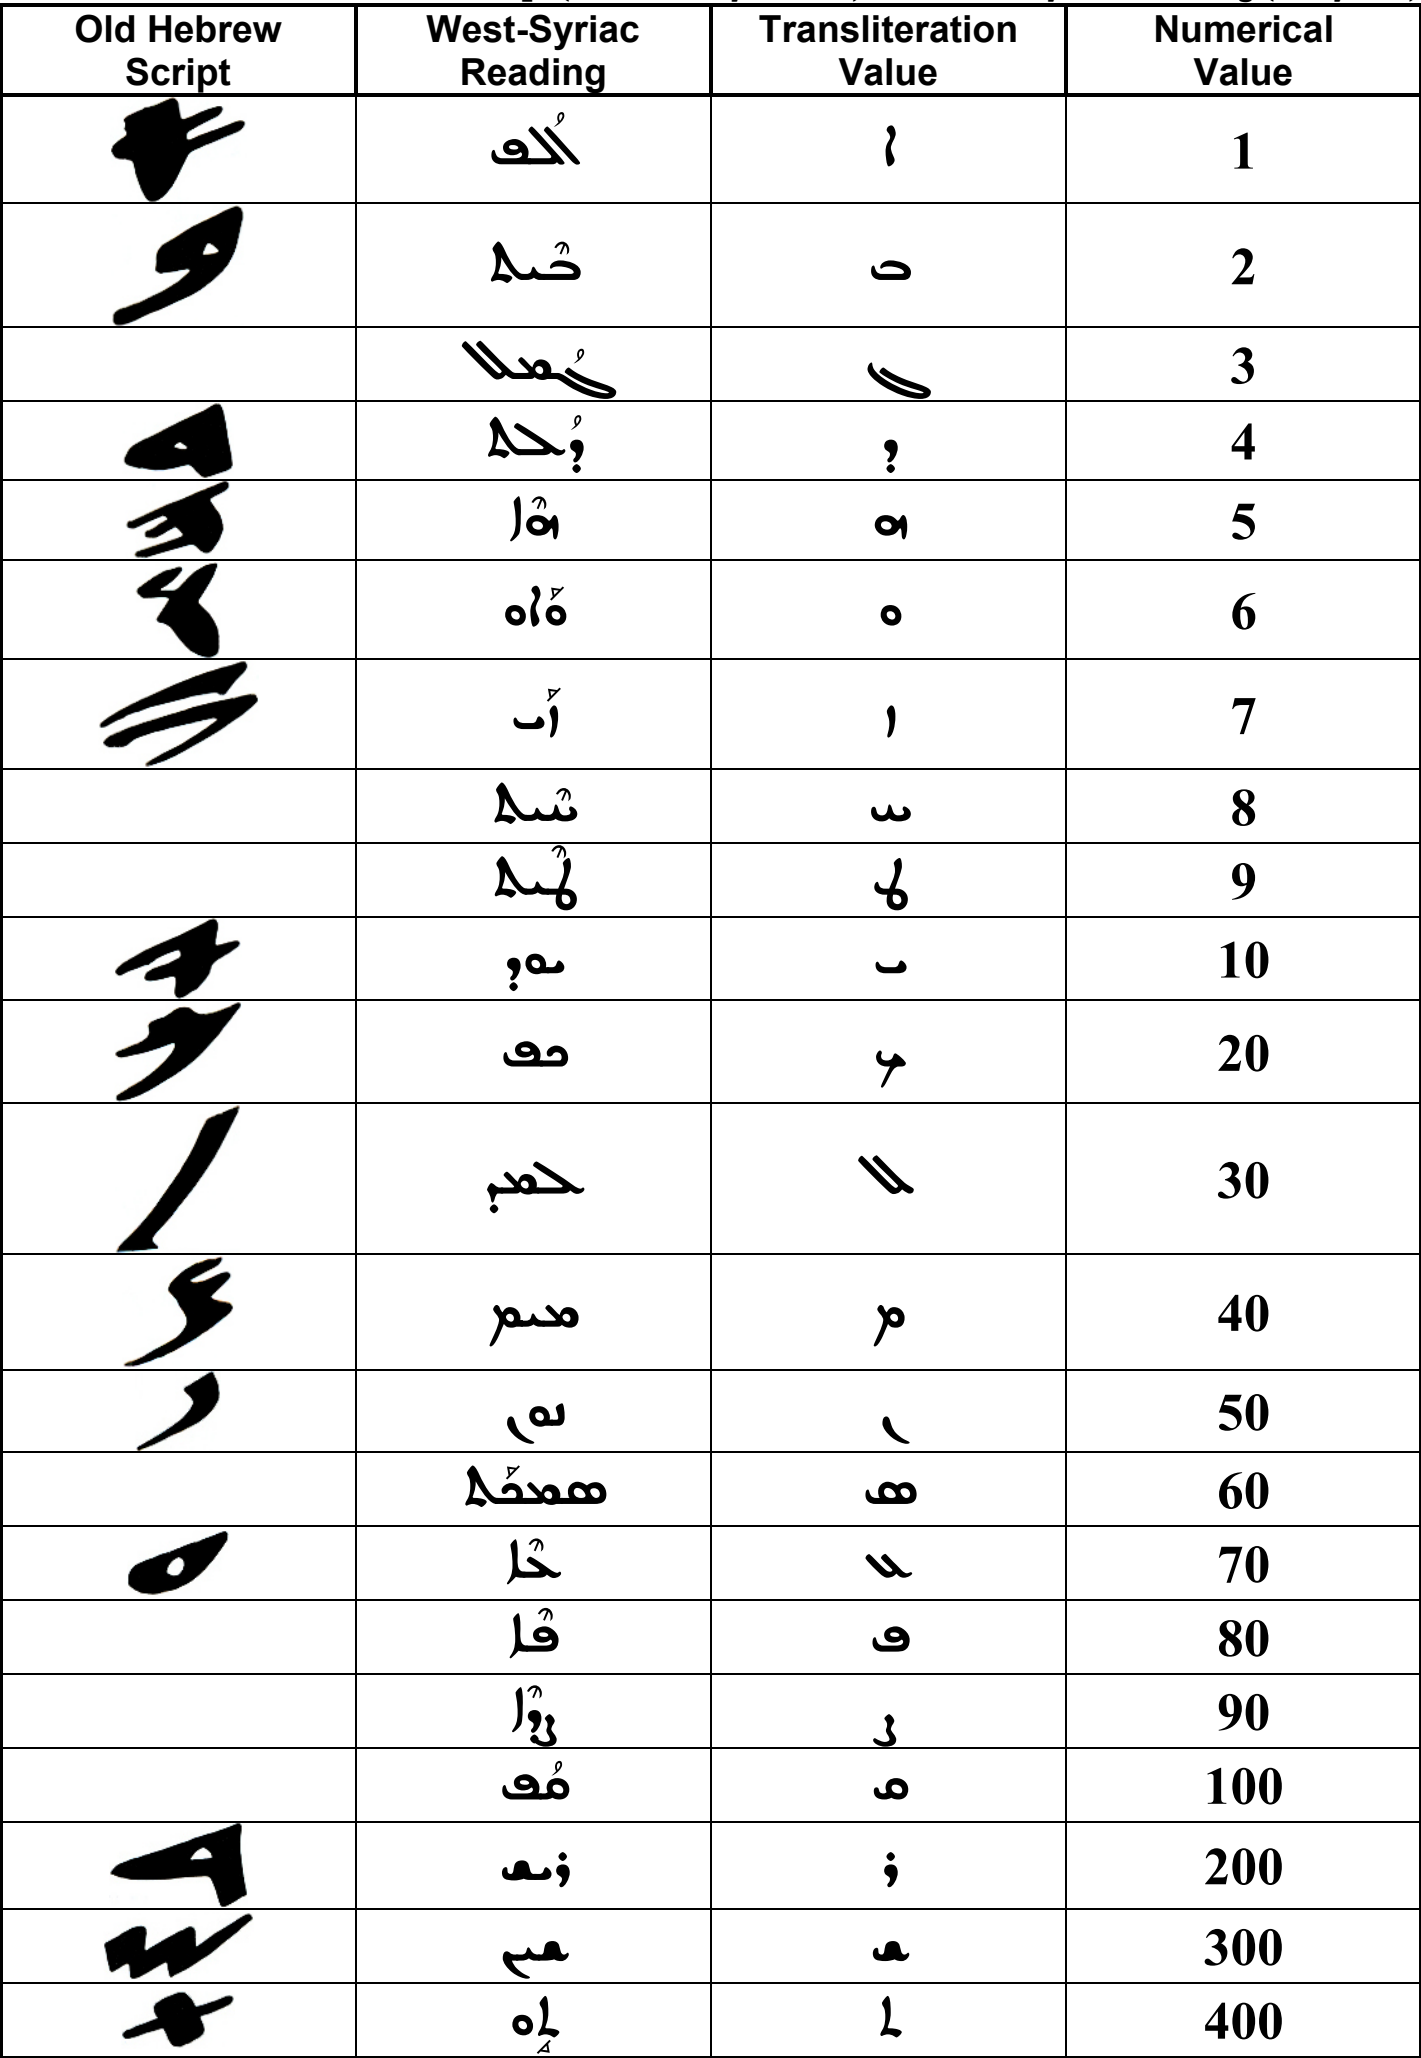 Old Hebrew West-Syriac Transliteration Numerical
Script Reading Value Value
ܐܳܠܦ ܐ 1
ܒܶܝܬ ܒ 2
ܓܳܡܠ ܓ 3
ܕܳܠܬ ܕ 4
ܗܶܐ ܗ 5
ܘܰܐܘ ܘ 6
ܙܰܝ ܙ 7
ܚܶܝܬ ܚ 8
ܛܶܝܬ ܛ 9
ܝܘܕ ܝ 10
ܟܦ ܟ 20
ܠܡܕ ܠ 30
ܡܝܡ ܡ 40
ܢܘܢ ܢ 50
ܣܡܟܰܬ ܣ 60
ܥܶܐ ܥ 70
ܦܶܐ ܦ 80
ܨܕܶܐ ܨ 90
ܩܳܦ ܩ 100
ܪܝܫ ܪ 200
ܫܝܢ ܫ 300
ܬܱܘ ܬ 400